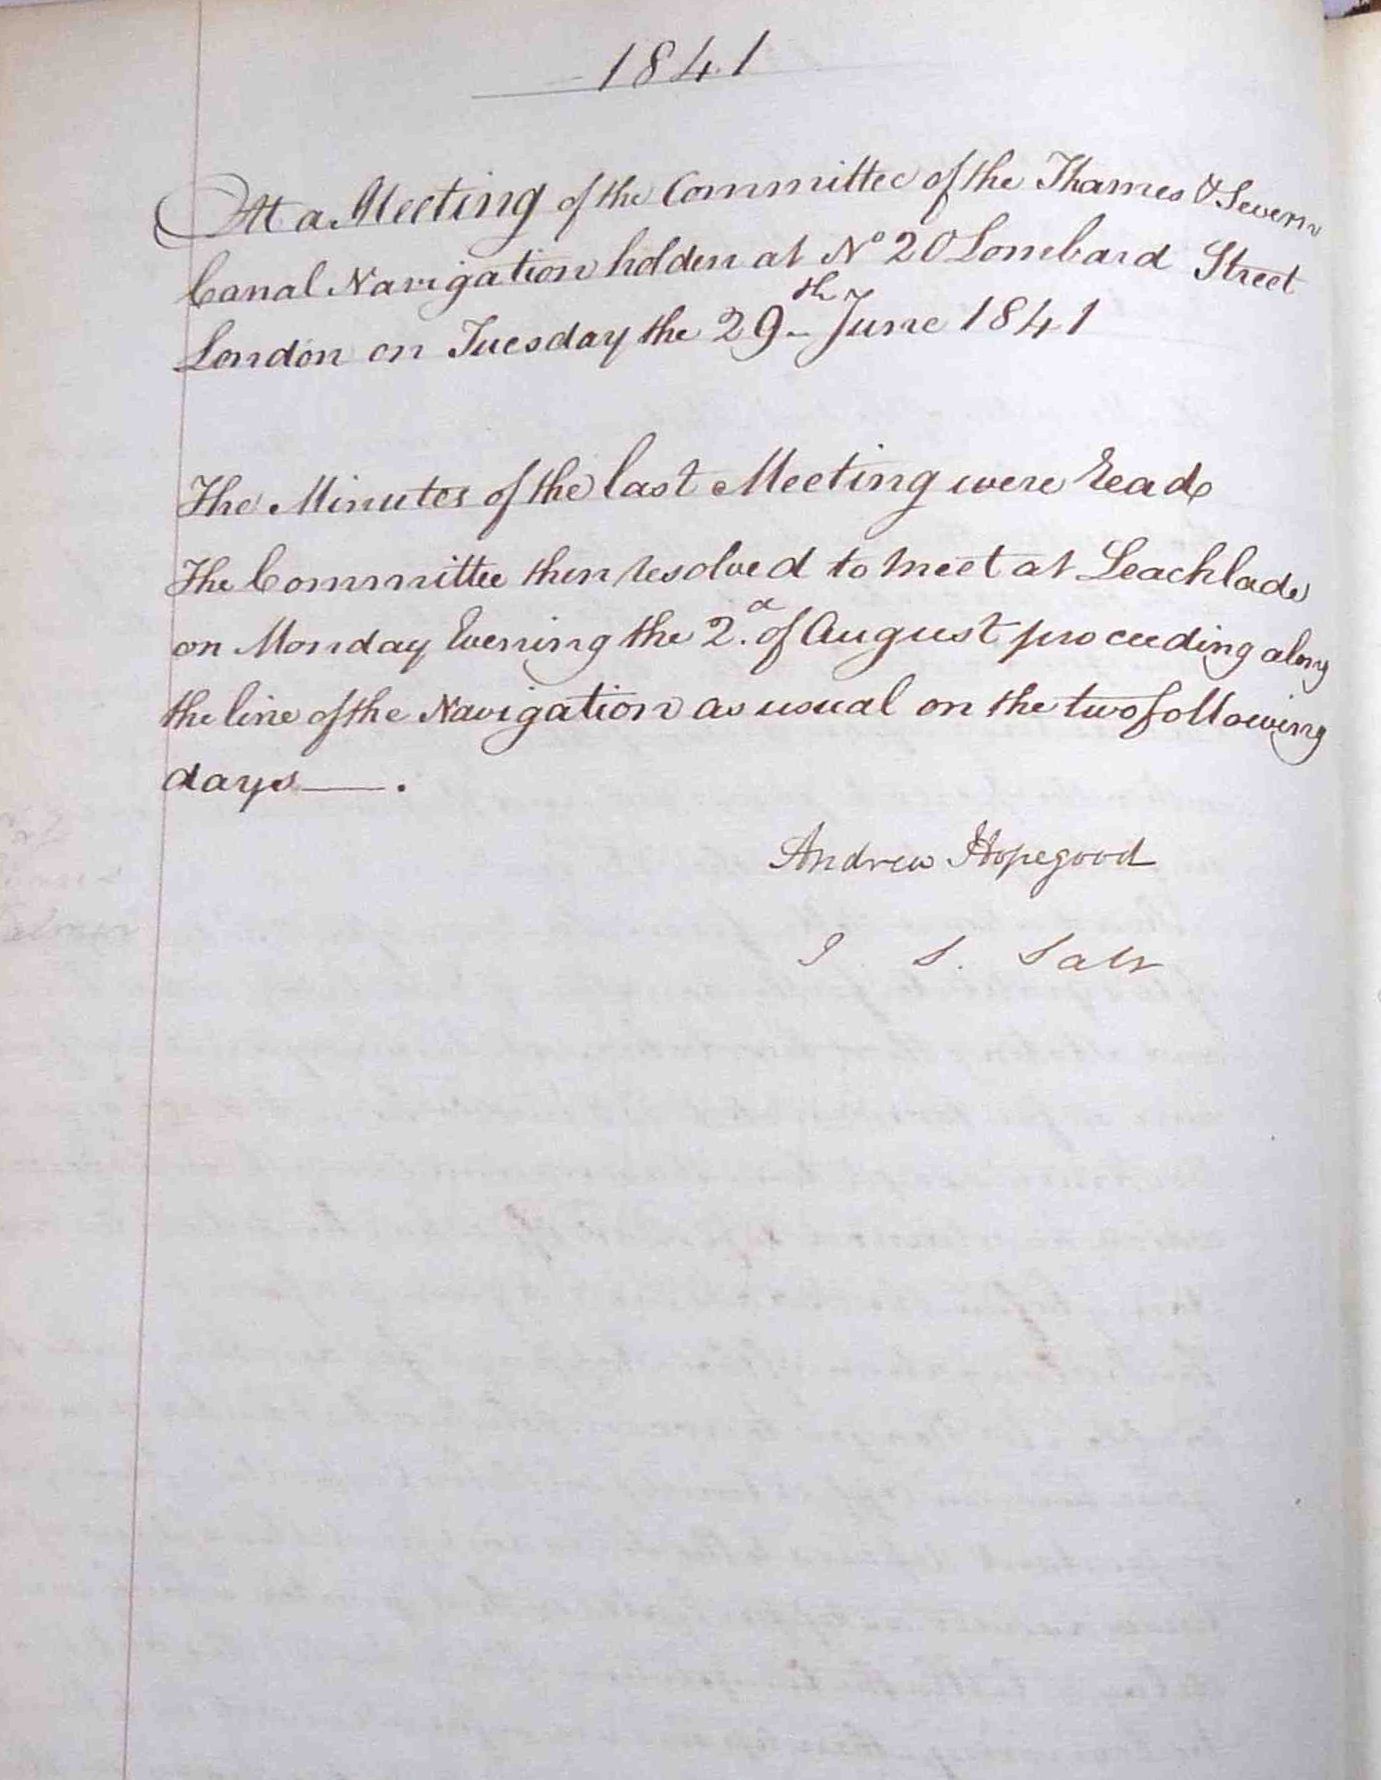 1841
At a Meeting of the Committee of the Thames & Severn
Canal Navigation holden at No 20 Lombard Street
London on Tuesday the 29th June 1841
The Minutes of the last Meeting were read
The Committee then resolved to meet at Leachlade
on Monday Evening the 2d. of August proceeding along
the line of the Navigation as usual on the two following
days —.
Andrew Hopegood
J. S. Salt